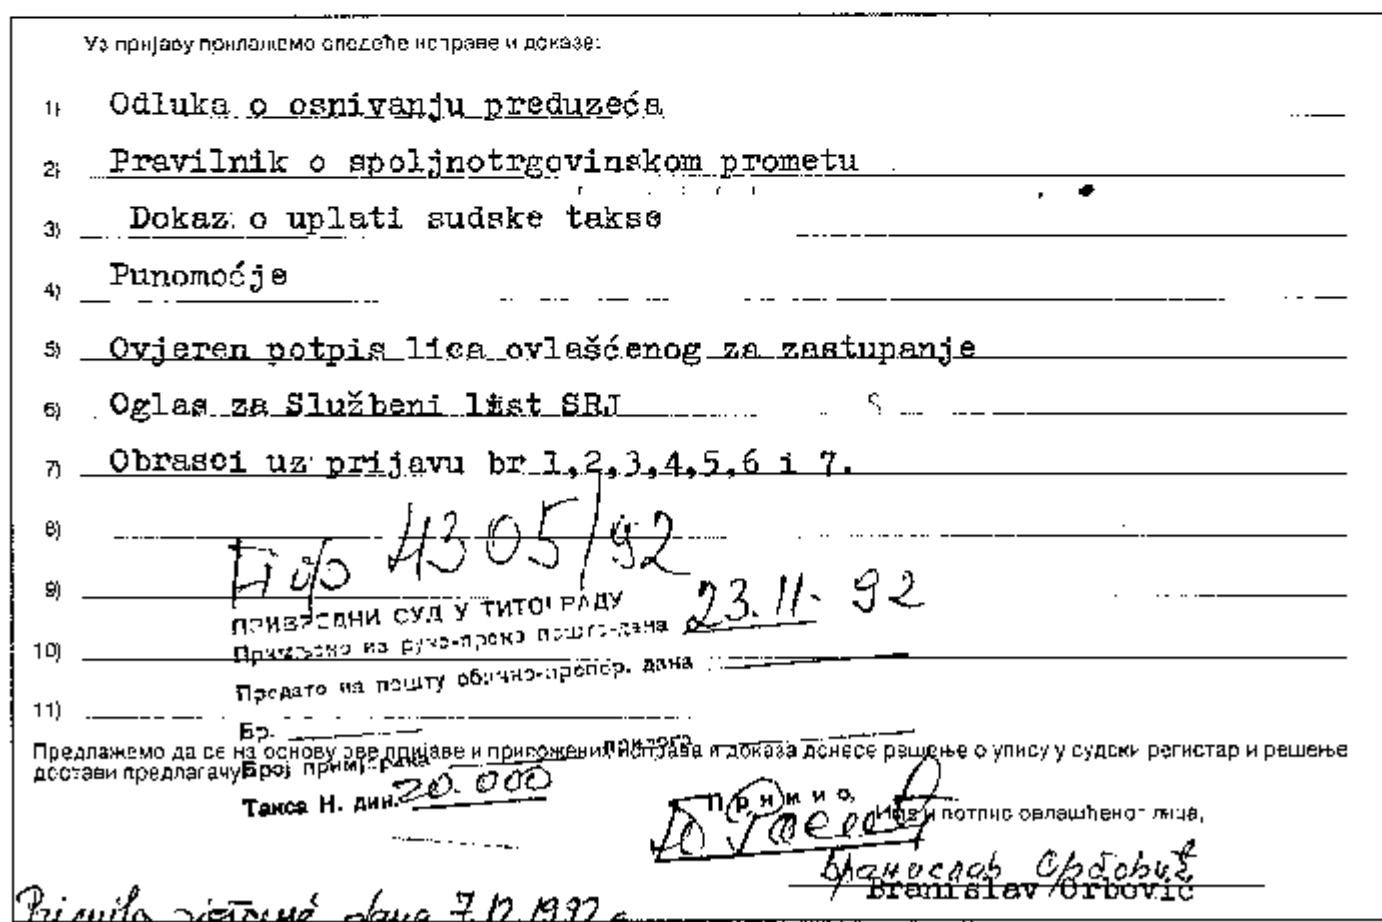 Уз пријаву прилажемо следеће исправе и доказе:
1) Odluka o osnivanju preduzeća
2) Pravilnik o spoljnotrgovinskom prometu
3) Dokaz o uplati sudske takse
4) Punomoćje
5) Ovjeren potpis lica ovlašćenog za zastupanje
6) Oglas za Službeni list SRJ
7) Obrasci uz prijavu br 1,2,3,4,5,6 i 7.
8)
4305/92
9)
ПРИВРЕДНИ СУД У ТИТОГРАДУ 23.11. 92
Примљено на руко-преко пошто-дана
10)
Предато на пошту обично-препор. дана
11)
Бр. прилога
Предлажемо да се на основу ове пријаве и приложених исправа и доказа донесе решење о упису у судски регистар и решење
достави предлагачу
Број примјерака
Такса Н. дин. 20.000
Примио,
Име и потпис овлашћеног лица,
Бранислав Орбовић
Branislav Orbović
dana 7.12.1992 g